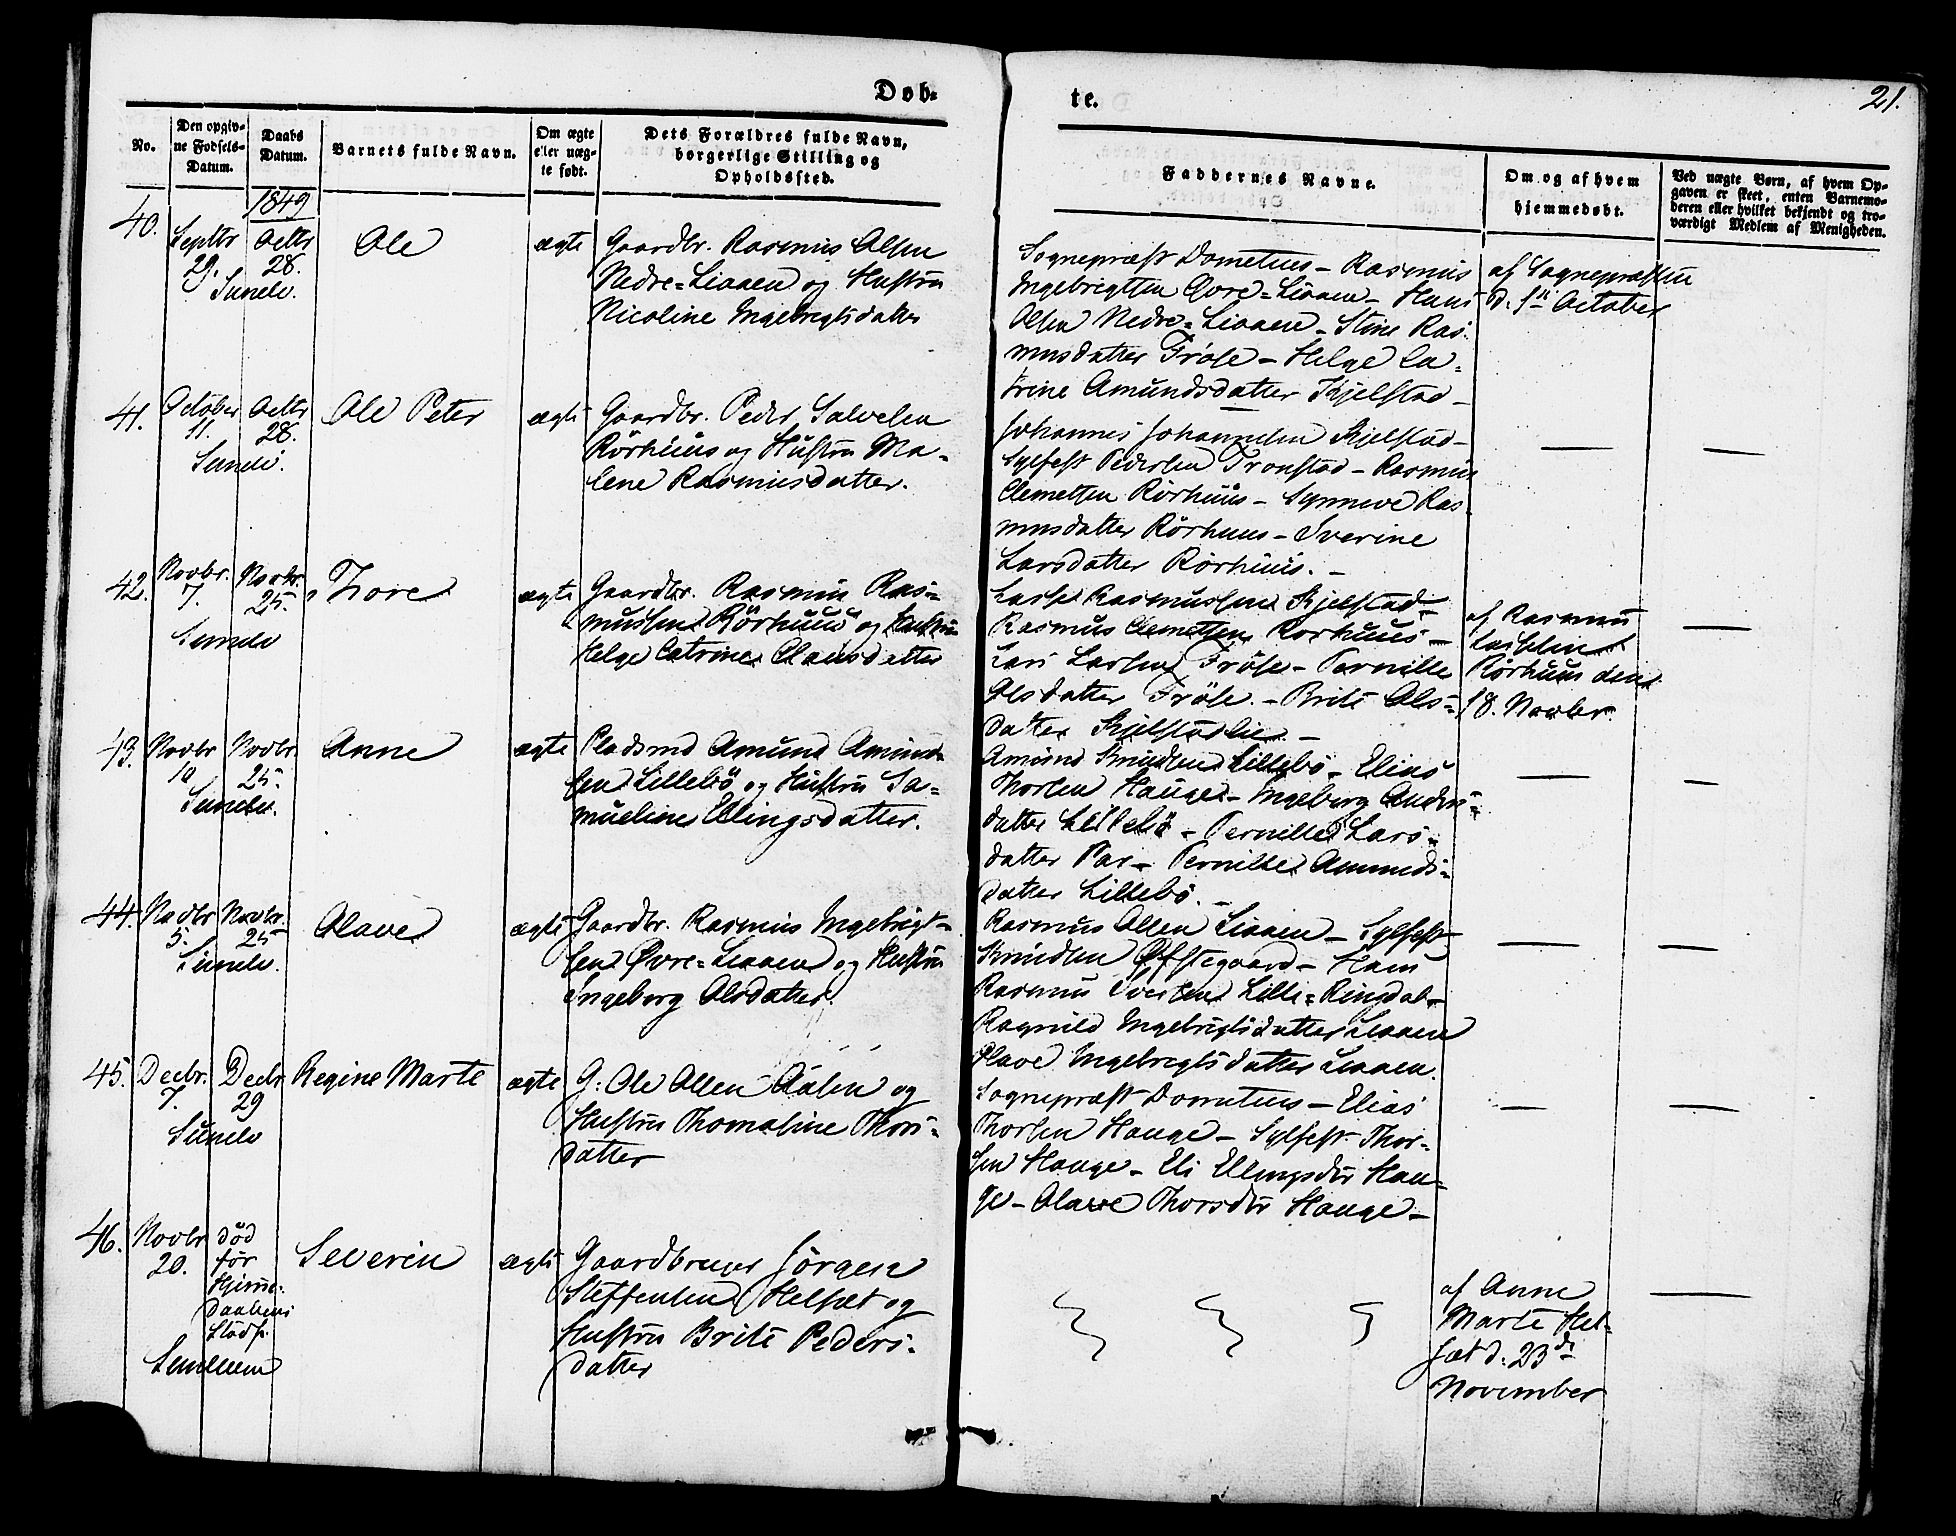 Døb-
te.
21.
No.
Den opgiv-
ne Fødsels-
Datum.
Daabs
Datum.
Barnets fulde Navn.
Om ægte
eller uæg-
te født.
Dets Forældres fulde Navn,
borgerlige Stilling og
Opholdssted.
Faddernes Navne.
Om og af hvem
hjemmedøbt.
Ved uægte Børn, af hvem Op-
gaven er skeet, enten Barnemo-
deren eller hvilket bekjendt og tro-
værdigt Medlem af Menigheden.
1849
40.
Septbr
29.
Octbr
28.
Sunelv.
Ole
ægte
Gaardbr. Rasmus Olsen
Nedre-Liaaen og Hustru
Nicoline Ingebregtsdatter
Sognepræst Dometius - Rasmus
Ingebrigtsen Øvre-Liaaen - Hans
Olsen Nedre-Liaaen - Stine Ras-
musdatter Frøse - Helge Ca-
trine Amundsdatter Kjelstad -
af Sognepræsten
d. 1ste October
41.
October
11.
Octbr
28.
Sunelv.
Ole Peter
ægte
Gaardbr. Peder Salvesen
Rörhuus og Hustru Ma-
lene Rasmusdatter.
Johannes Johannesen Kjelstad -
Sylfest Pedersen Tronstad - Rasmus
Clemetsen Rörhuus - Synneve Ras
musdatter Rörhuus - Sverine
Larsdatter Rörhuus. -
42.
Novbr.
7.
Novbr.
25.
Sunelv
Thore
ægte
Gaardbr. Rasmus Ras-
mussen Rörhuus og Hustru
Helge Catrine Clausdatter
Lasse Rasmussen Kjelstad -
Rasmus Clemetsen Rorhuus -
Lars Larsen Fröse - Pernille
Olsdatter Fröse. - Brite Ols-
datter Kjelstadlie. -
af Rasmus
Rörhuus den
18. Novbr.
43.
Novbr
10
Novbr.
25.
Sunelv.
Anne
ægte
Pladsmd Amund Amund-
sen Lillebö og Hustru Sa-
mueline Ellingsdatter.
Amund Knudsen Lillebö - Elias
Thorsen Hauge - Ingeborg Anders-
datter Lillebö - Pernille Lars-
datter - Pernille Amunds-
datter Lillebö. -
44.
Novbr
5.
Novbr.
25
Sunelv.
Olave
ægte
Gaardbr. Rasmus Ingebrigt-
sen Øvre-Liaaen og Hustru
Ingeborg Olsdatter.
Rasmus Olsen Liaaen - Sylfest
Knudsen Øfstegaard - Hans
Rasmus Iversen Lille-Ringdal -
Ragnild Ingebrigtsdatter Liaaen
Olave Ingebregtsdatter Liaaen.
45.
Decbr.
7.
Decbr
29
Sunelv
Regine Marte
ægte
G: Ole Olsen og
Hustru Thomasine Thors-
datter
Sognepræst Dometius - Elias
Thorsen Hauge - Sylfest Thor-
sen Hauge - Eli Ellingsdtr Hau-
ge - Olave Thorsdtr Hauge -
46.
Novbr
20.
død
før
Hjemme-
Daabens
Stadf.
Severin
ægte
Gaardbruger Jörgen
Steffensen Helset og
Hustru Brite Peders-
datter
af Anne
Marte Hel-
set d. 23de
November